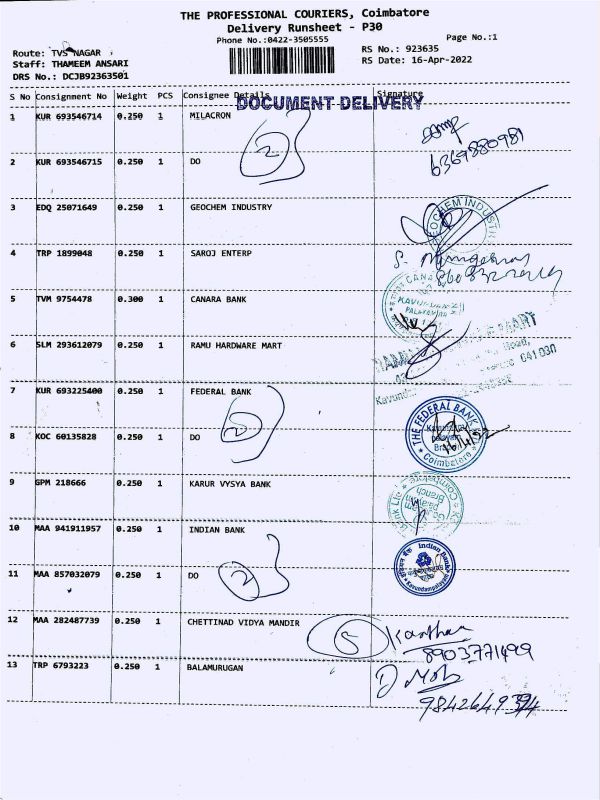 THE PROFESSIONAL COURIERS, Coimbatore
Delivery Runsheet - P30
Phone No.:0422-3505555
Page No.:1
Route: TVS NAGAR
Staff: THAMEEM ANSARI
DRS No.: DCJB92363501
RS No.: 923635
RS Date: 16-Apr-2022
S No Consignment No Weight PCS Consignee Details Signature
DOCUMENT DELIVERY
1 KUR 693546714 0.250 1 MILACRON
6369880981
2 KUR 693546715 0.250 1 DO
2
3 EDQ 25071649 0.250 1 GEOCHEM INDUSTRY
GEOCHEM INDUSTR
4 TRP 1899048 0.250 1 SAROJ ENTERP
S.
5 TVM 9754478 0.300 1 CANARA BANK
CANA
KAVUNDAM
PALAYAM
6 SLM 293612079 0.250 1 RAMU HARDWARE MART
MART
641 030
Kavund
7 KUR 693225400 0.250 1 FEDERAL BANK
2
8 KOC 60135828 0.250 1 DO
THE FEDERAL BANK
Coimbatore
9 GPM 218666 0.250 1 KARUR VYSYA BANK
Branch
10 MAA 941911957 0.250 1 INDIAN BANK
Indian Bank
Kavundampalayam
11 MAA 857032079 0.250 1 DO
2
12 MAA 282487739 0.250 1 CHETTINAD VIDYA MANDIR
5 Karthan
8903771499
13 TRP 6793223 0.250 1 BALAMURUGAN
D